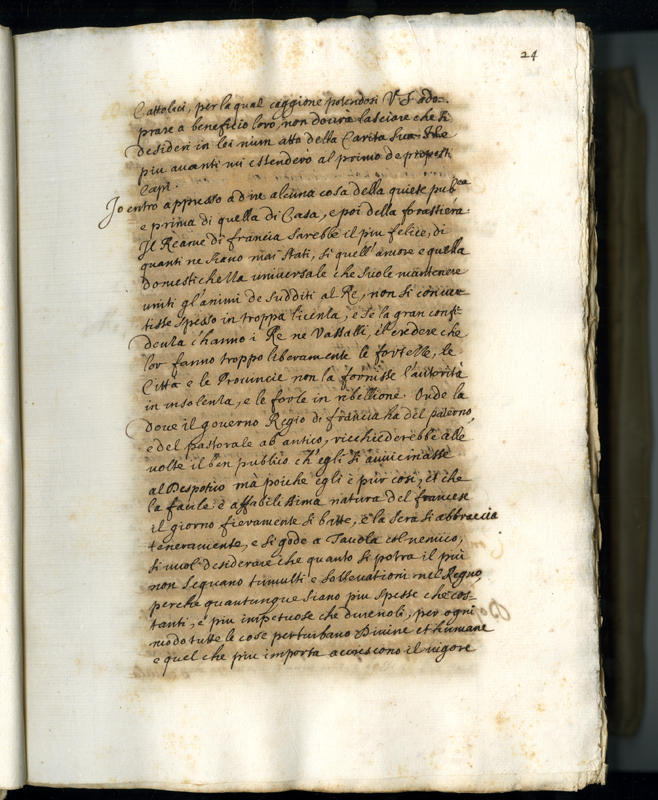 24
Cattolici, per la qual caggione potendosi V.S. ado-
prare a beneficio loro, non dourà lasciare che si
desideri in lei num atto della Carità Sua. Ne
piu auanti mi estenderò al primo de proposti
Capi.
Io entro appresso a dire alcuna cosa della quiete pubca
e prima di quella di Casa, e poi della forastiera
Il Reame di francia sarebbe il piu felice, di
quanti ne siano mai stati, si quell'amore e quella
domestichezza universale che suole mantenere
uniti gl'animi de sudditi al Re, non si conuer-
tisse spesso in troppa licenza, e se la gran confi-
denza c'hanno i Re ne Vassalli, il credere che
lor fanno troppo liberamente le fortezze, le
Città e le Prouincie non la fornisse l'autorità
in insolenza, e le forze in ribellione. Onde la
doue il governo Regio di francia ha del paterno,
e del pastorale ab antico, ricchiederebbe alle
uolte il ben publico ch'egli si auuicinasse
al Despotico mà poiche egli è pur cosi, et che
la facile è affabilissima natura del francese
il giorno fieramente si batte, e la sera si abbraccia
teneramente, e si gode a Tauola col nemico,
si uuol desiderare che quanto si potra il piu
non seguano tumulti e solleuationi nel Regno,
perche quantunque siano piu spesse che cos-
tanti, e piu impetuose che dureuoli, per ogni
modo tutte le cose perturbano Diuine et humane
e quel che piu importa accrescono il uigore